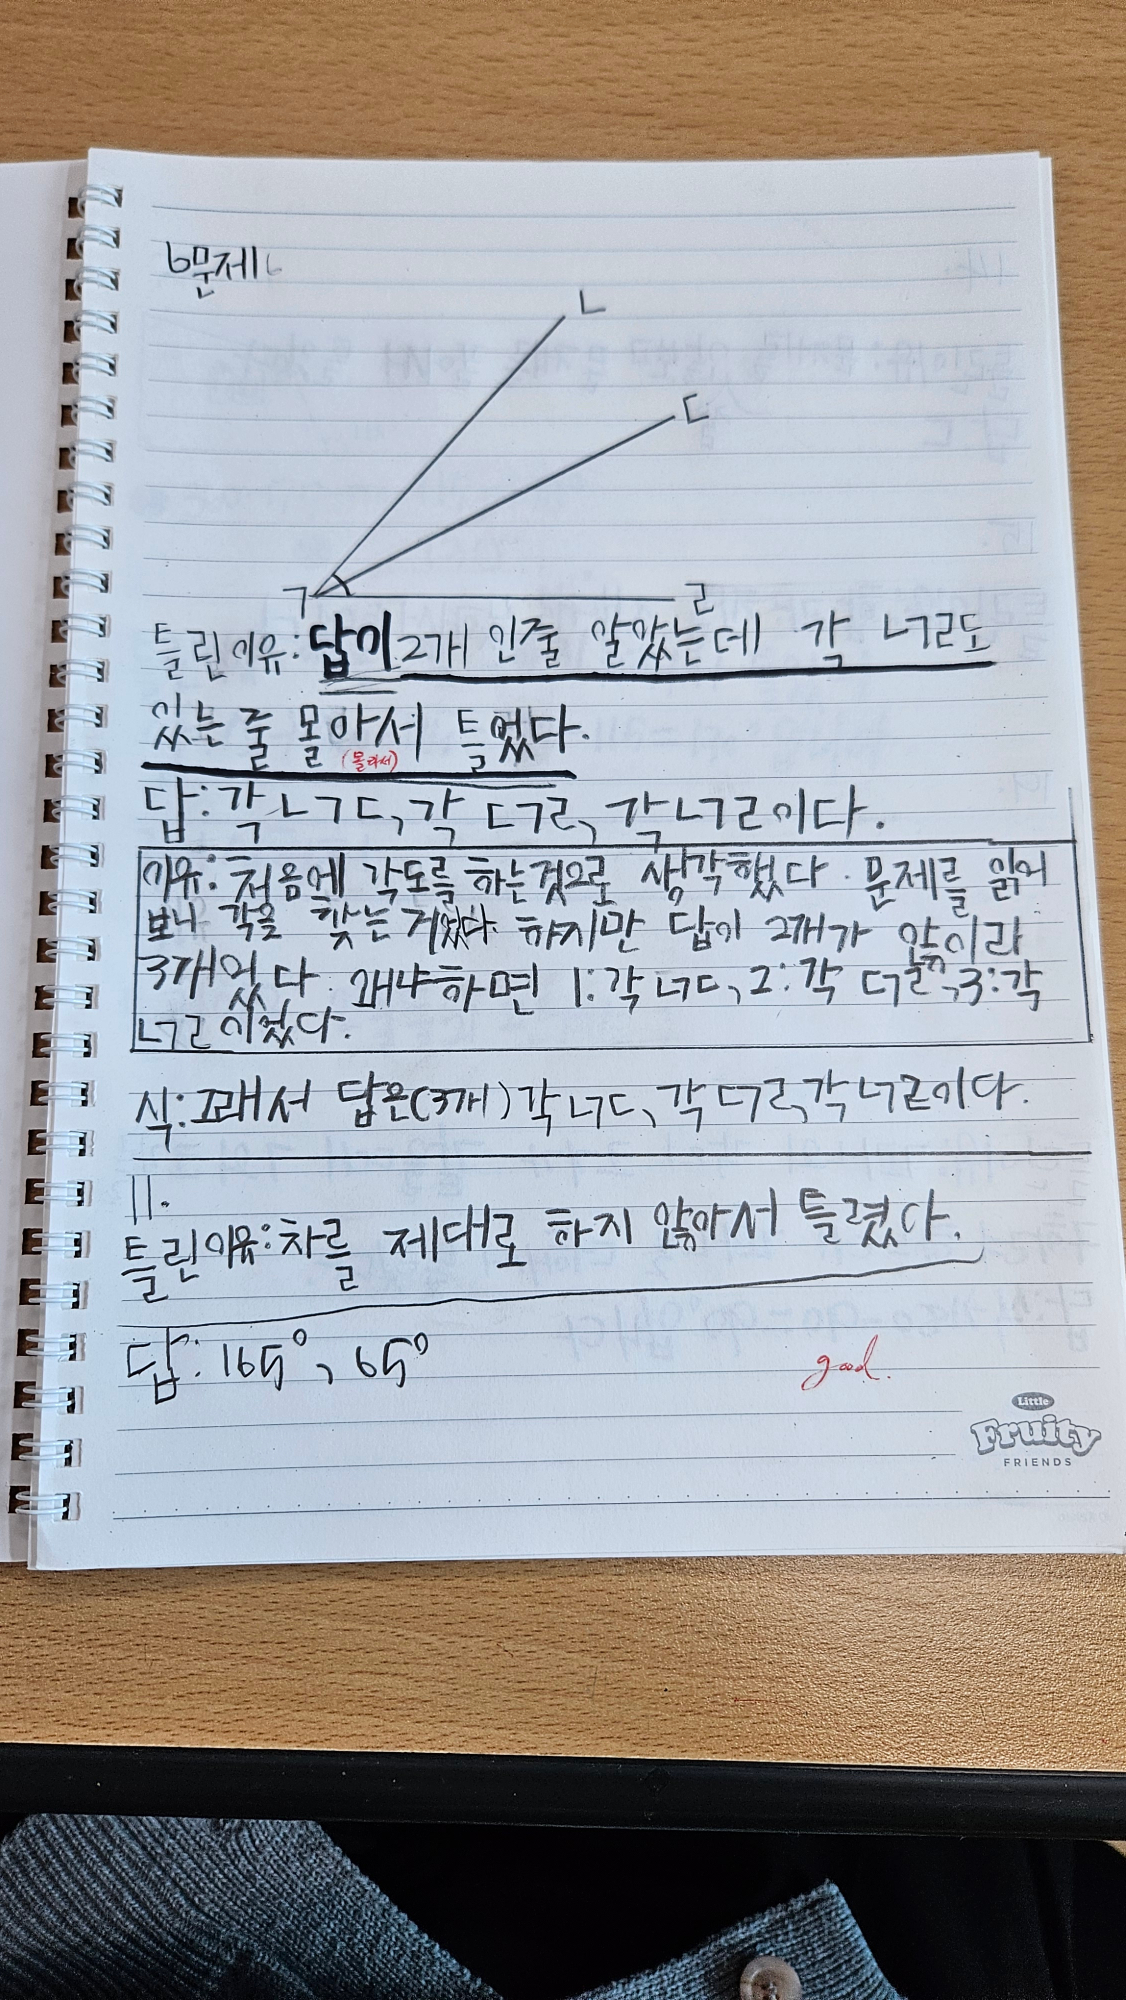 6문제
ㄴ
ㄷ
ㄱ
ㄹ
틀린이유:답이 2개 인줄 알았는데 각 ㄴㄱㄹ도
있는 줄 몰아서 틀렸다.
(몰라서)
답:각 ㄴㄱㄷ, 각 ㄷㄱㄹ, 각 ㄴㄱㄹ이다.
이유: 처음에 각도를 하는것으로 생각했다. 문제를 읽어
보니 각을 찾는거였다. 하지만 답이 2개가 않이라
3개였다. 왜냐하면 1:각 ㄴㄱㄷ, 2:각 ㄷㄱㄹ, 3:각
ㄴㄱㄹ이었다.
식:그래서 답은(3개)각 ㄴㄱㄷ, 각 ㄷㄱㄹ, 각 ㄴㄱㄹ이다.
11.
틀린이유:차를 제대로 하지 않아서 틀렸다.
답: 165°, 65°
good.
Little
Fruity
FRIENDS